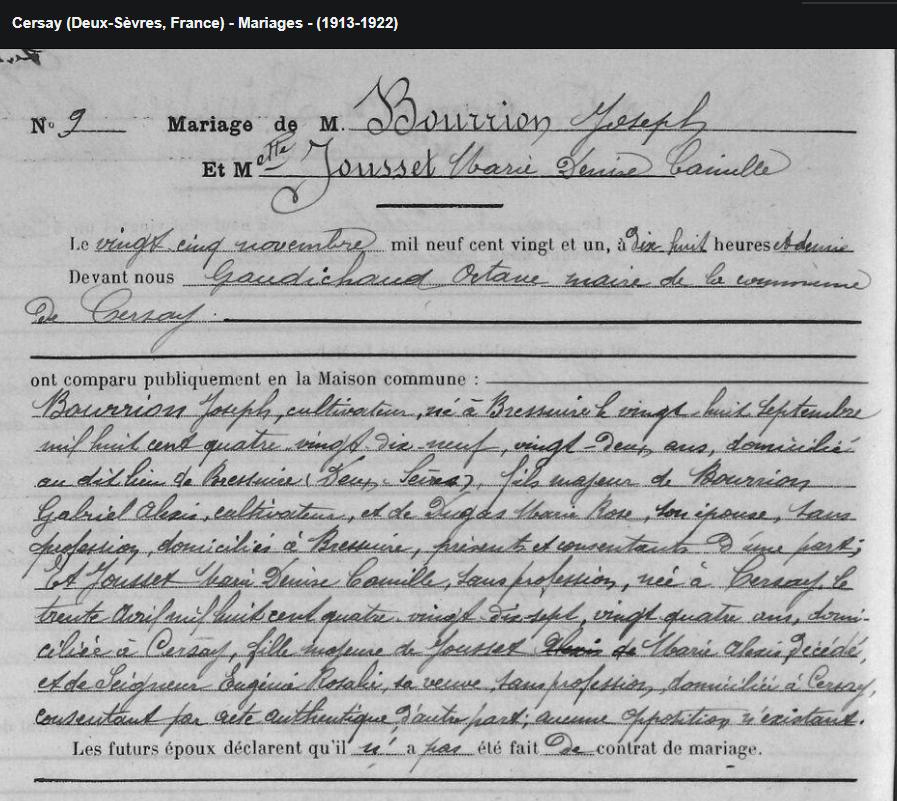 Cersay (Deux-Sèvres, France) - Mariages - (1913-1922)
No 9 Mariage de M. Bourrion Joseph
Et Melle Jousset Marie Denise Camille
Le vingt cinq novembre mil neuf cent vingt et un, à dix huit heures et demie
Devant nous Gaudichaud Octave maire de la commune
De Cersay.
ont comparu publiquement en la Maison commune :
Bourrion Joseph, cultivateur, né à Bressuire le vingt-huit septembre
mil huit cent quatre-vingt dix-neuf, vingt-deux ans, domicilié
au dit lieu de Bressuire (Deux-Sèvres), fils majeur de Bourrion
Gabriel Alexis, cultivateur, et de Dugas Marie Rose, son épouse, sans
profession, domiciliés à Bressuire, présents et consentants d'une part;
Et Jousset Marie Denise Camille, sans profession, née à Cersay, le
trente avril mil huit cent quatre-vingt dix sept, vingt quatre ans, domi-
ciliée à Cersay, fille majeure de Jousset Alexis de Marie Alexis, décédé,
et de Seigneur Eugénie Rosalie, sa veuve, sans profession, domiciliée à Cersay,
consentant par acte authentique d'autre part; aucune opposition n'existant.
Les futurs époux déclarent qu'il n' a pas été fait de contrat de mariage.